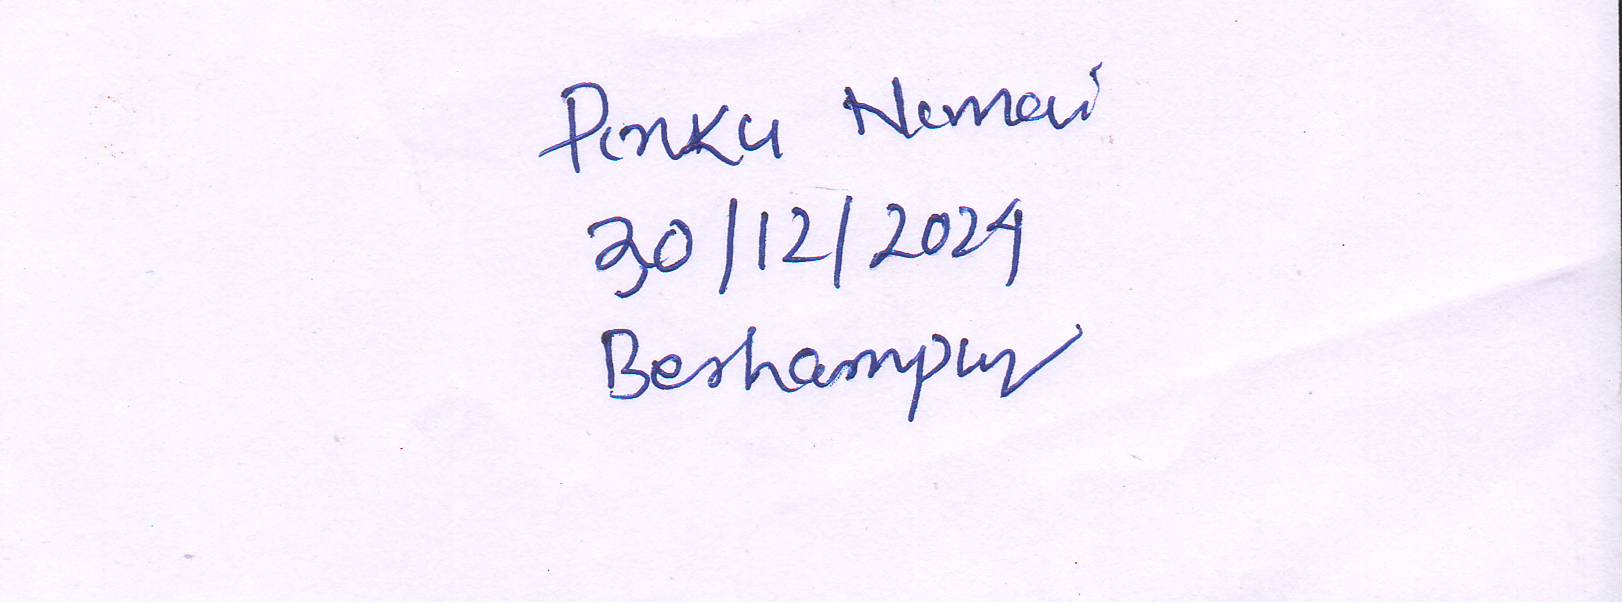 Pinku Nimai
30/12/2024
Berhampur